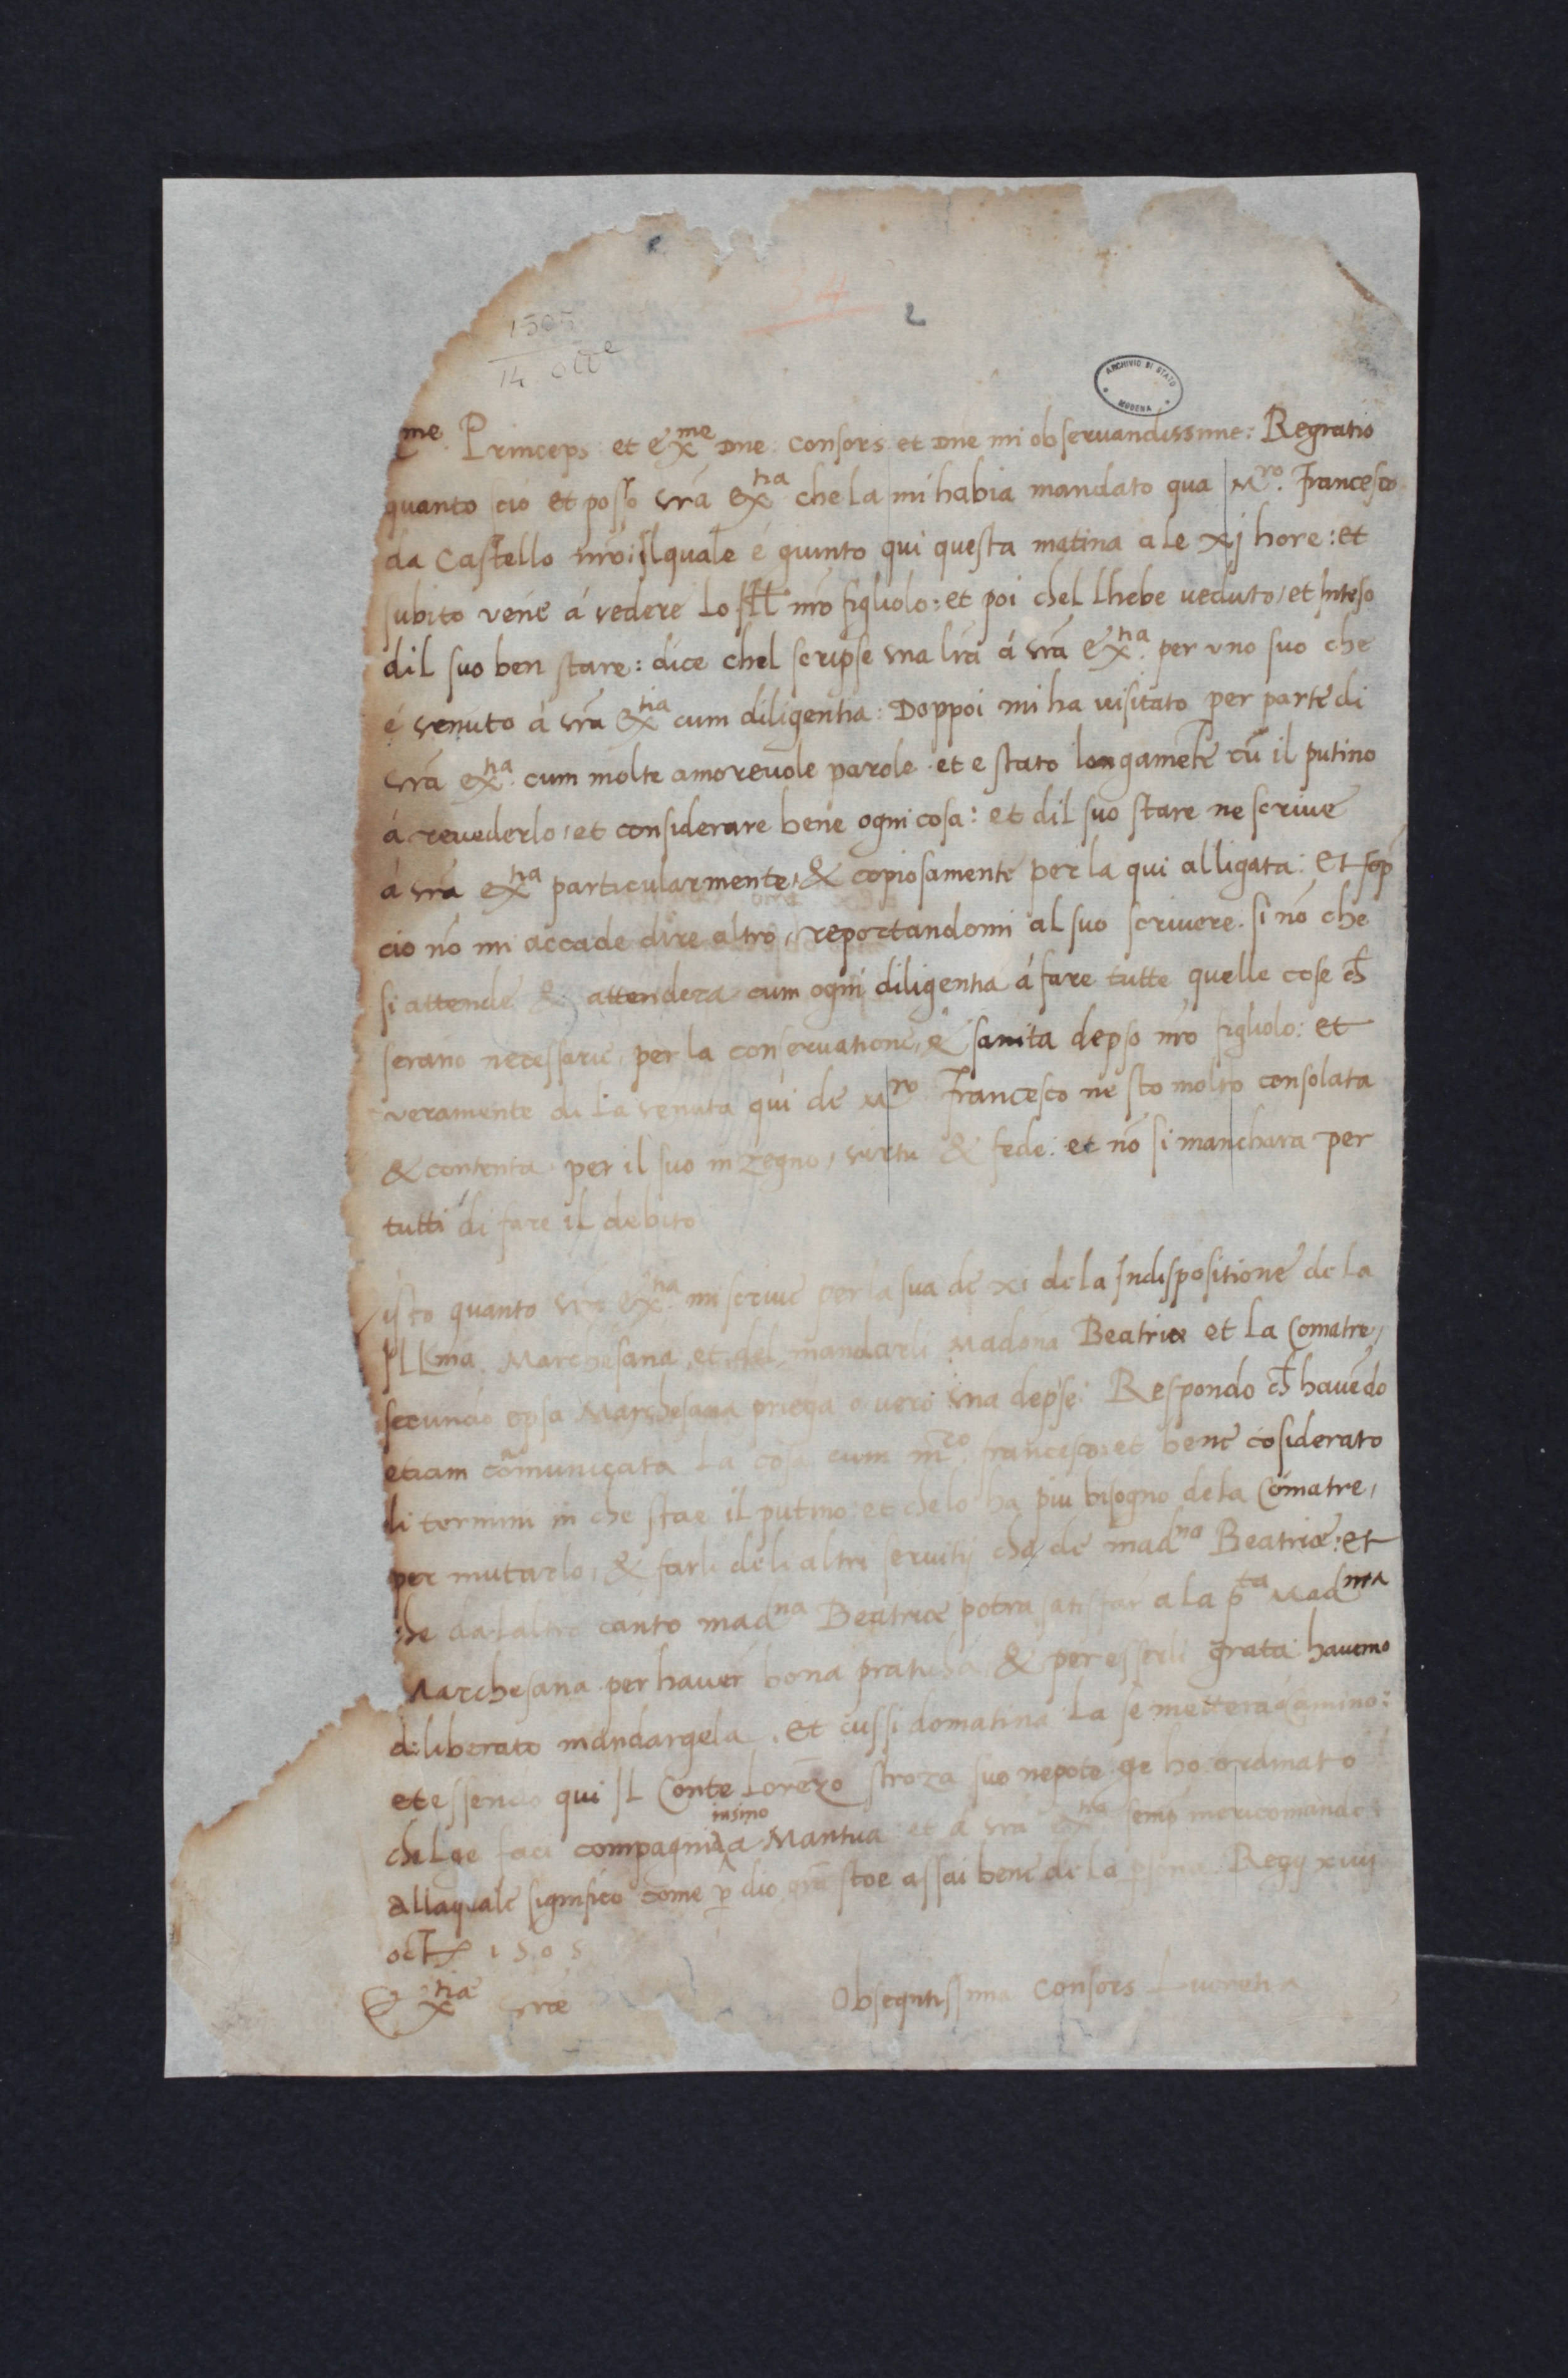 34
2
1505
14 ott.e
ARCHIVIO DI STATO
MODENA
me. Princeps et exme Dne consors et Dne mi observandissime: Regratio
quanto scio et posso vrã extia che la mi habia mandato qua Mro. Francesco
da Castello nrõ: Ilquale é giunto qui questa matina a le xj hore: et
subito vene á vedere lo Ill nrõ figliolo: et poi chel lhebe veduto, et Inteso
dil suo ben stare: dice chel scripse una lrã á vrã extia. per uno suo che
é venuto á vrã extia cum diligentia: Doppoi mi ha visitato per parte di
vrã extia. cum molte amorevole parole et e stato longamete cũ il putino
á revederlo, et considerare bene ogni cosa: et dil suo stare ne scrive
á vrã extia particularmente, & copiosamente per la qui alligata: Et sop
cio nõ mi accade dire altro, reportandomi al suo scrivere. si nõ che
si attende & attendera cum ogni diligentia á fare tutte quelle cose ch
serano necessarie, per la conservatione, & sanita depso nrõ figliolo: et
veramente di la venuta qui de Mro Francesco ne sto molto consolata
& contenta per il suo inzegno, virtu & fede: et nõ si manchara per
tutti di fare il debito
Visto quanto vrã extia. mi scrive per la sua de xi de la Indispositione de la
Illma. Marchesana, et del mandarli Madona Beatrice et la Comatre,
secundo epsa Marchesana priega o vero una depse: Respondo ch havẽdo
etiam cõmunicata la cosa cum mco. francesco: et bene cõsiderato
li termini in che stae il putino et che lo ha piu bisogno de la Cõmatre,
per mutarlo, & farli de li altri servitij che de madna Beatrice: et
che da laltro canto madna Beatrice potra satisfar a la pta Madma
Marchesana per haver bona praticha & per esserli grata: havemo
diliberato mandargela. Et cussi domatina la se mettera a camino:
et essendo qui il Conte Lorẽzo Stroza suo nepote ge ho ordinato
chel ge faci compagnia insino a Mantua: et á vrã extia. semp mericomando:
Alla quale significo come p dio grã stoe assai bene de la psona. Regij xiiij
octb 1505
Extie vrẽ
Obseqntissima Consors Lucretia